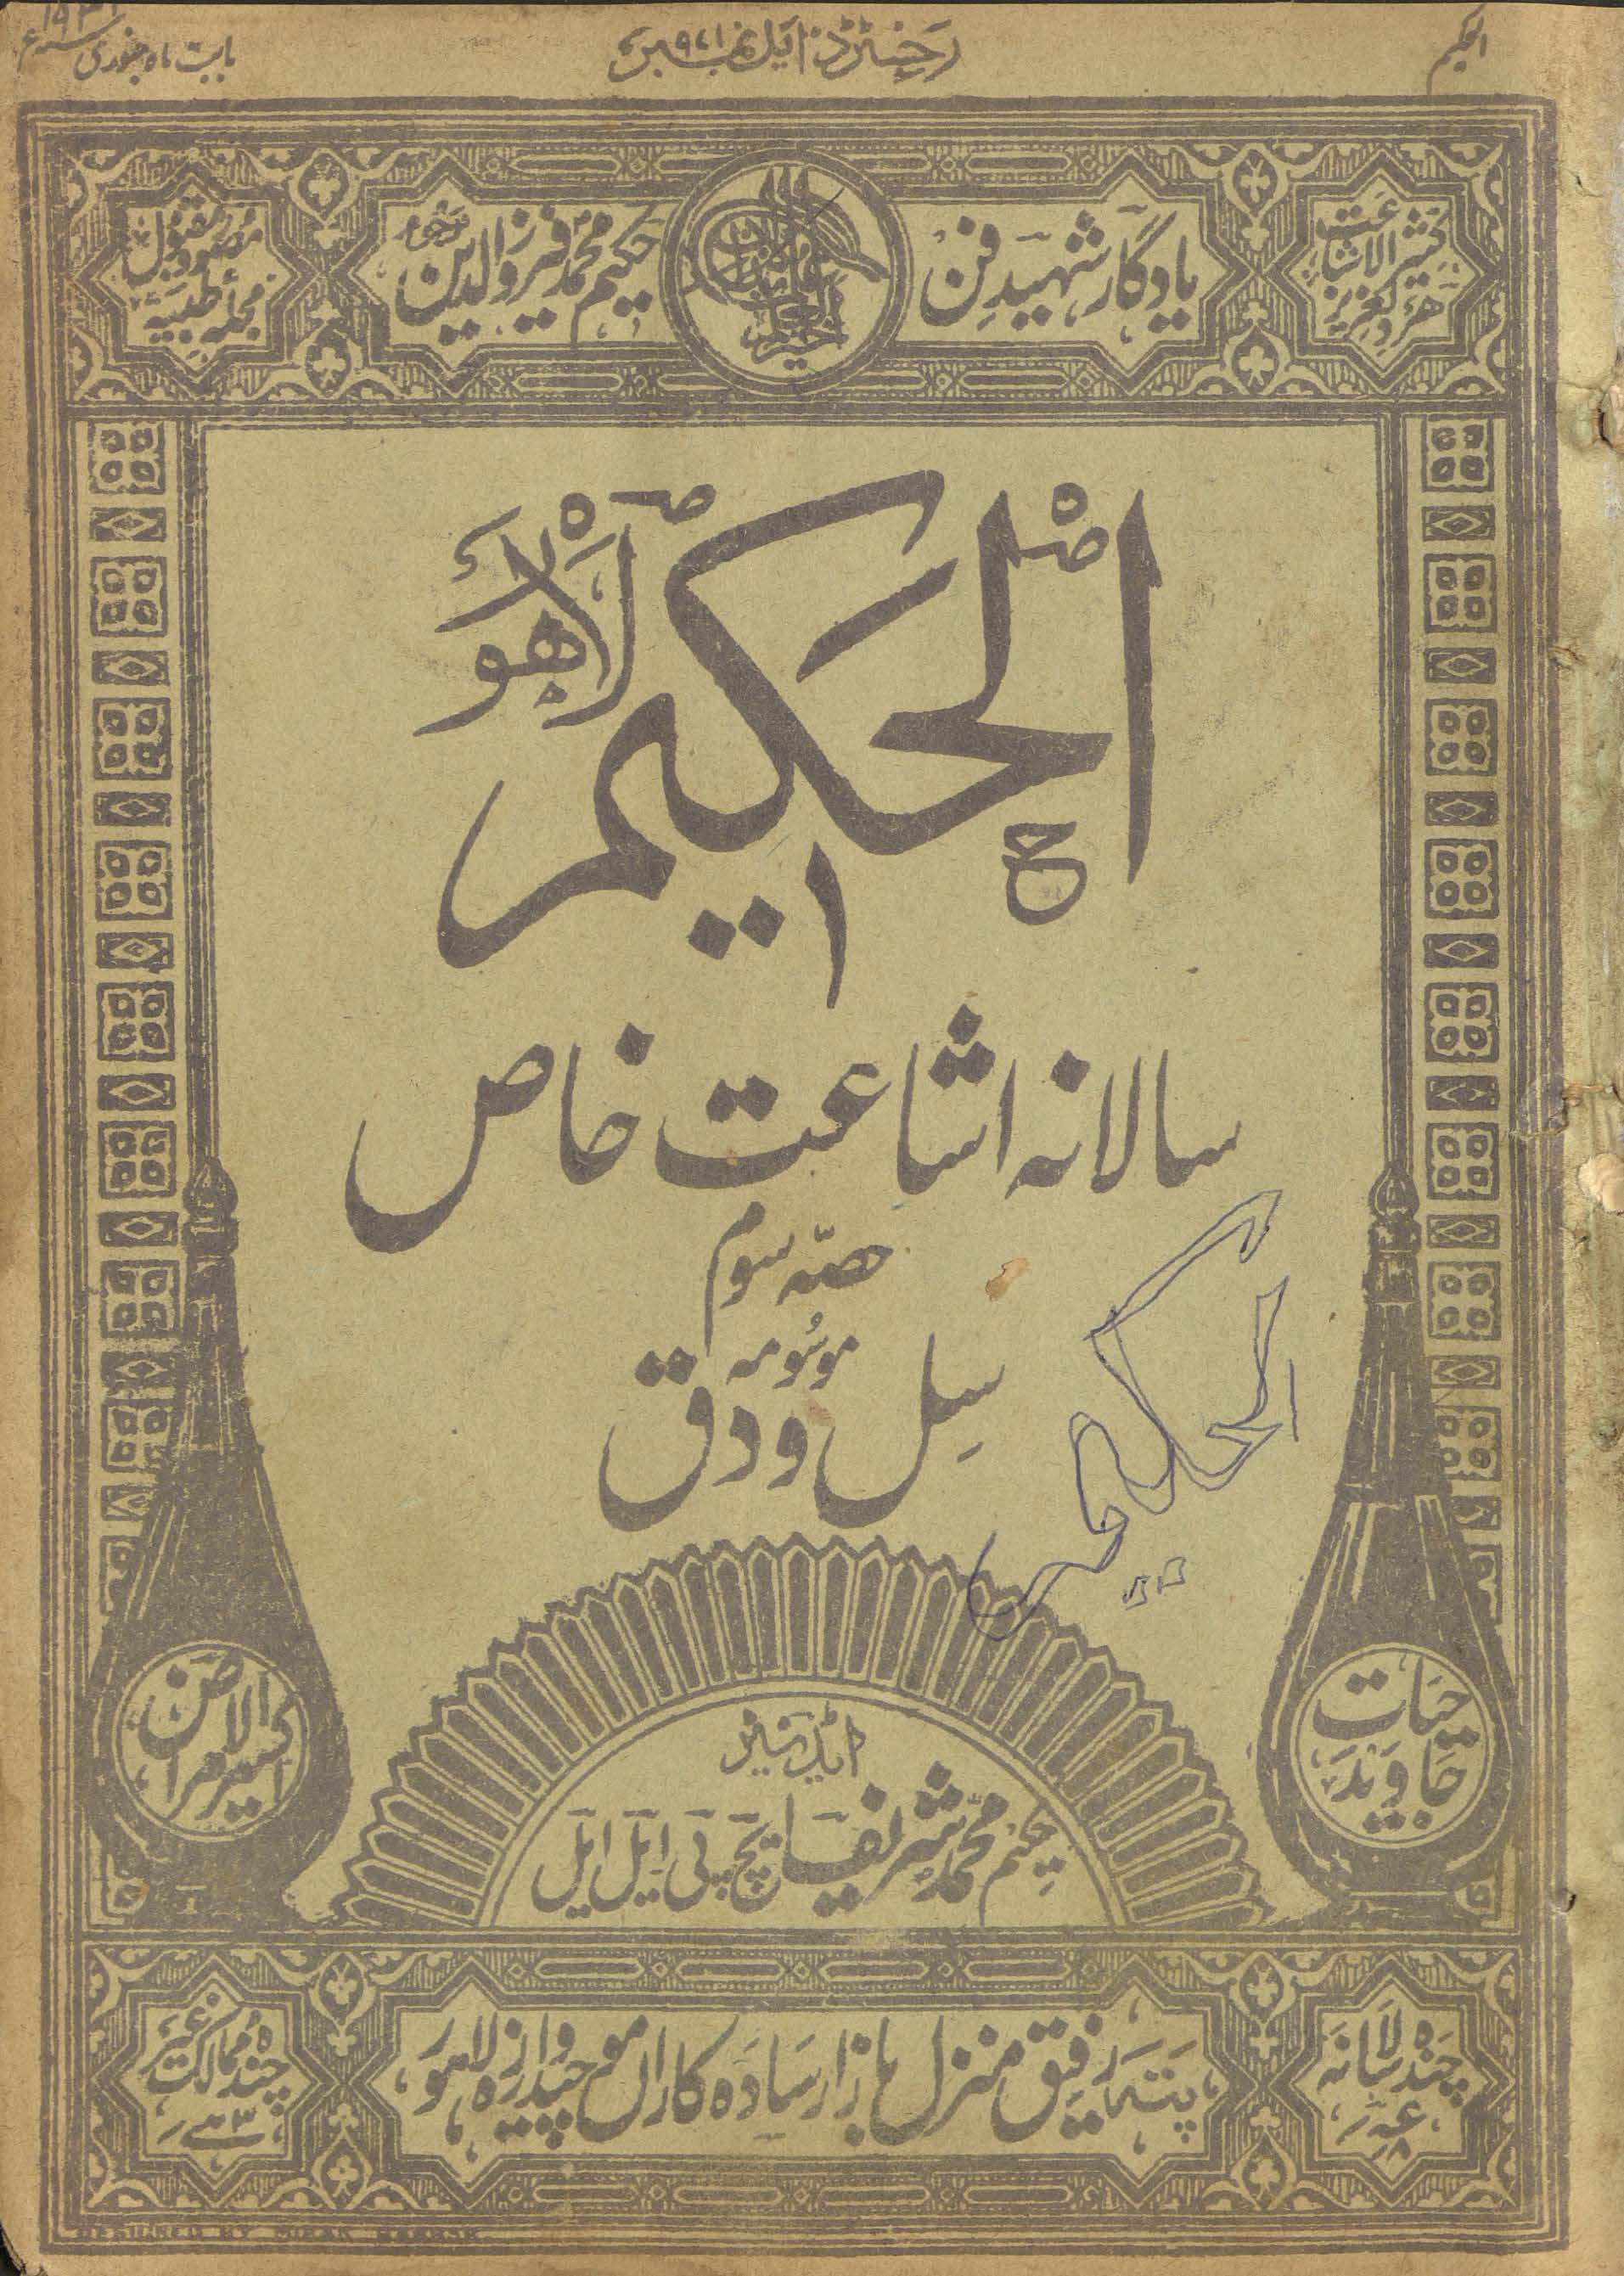 الحکیم
رجسٹرڈ ایل نمبر ۹۷۱
بابت ماہ جنوری
کثیر الاشاعت ہر دلعزیز
یادگار شہید فن
حکیم محمد فیروزالدین مرحوم
مصور و مقبول مجلہ طبیہ
الحکیم لاہور
سالانہ اشاعت خاص
حصہ سوم
موسومہ
سِل و دق
الحکیم
حیات جاوید
اکسیر الامراض
ایڈیٹر
حکیم محمد شریف ایچ پی ایل ایل
چندہ سالانہ
پتہ رفیق منزل بازار سادہ کاراں موچیدروازہ لاہور
چندہ ممالک غیر
DESIGNED BY